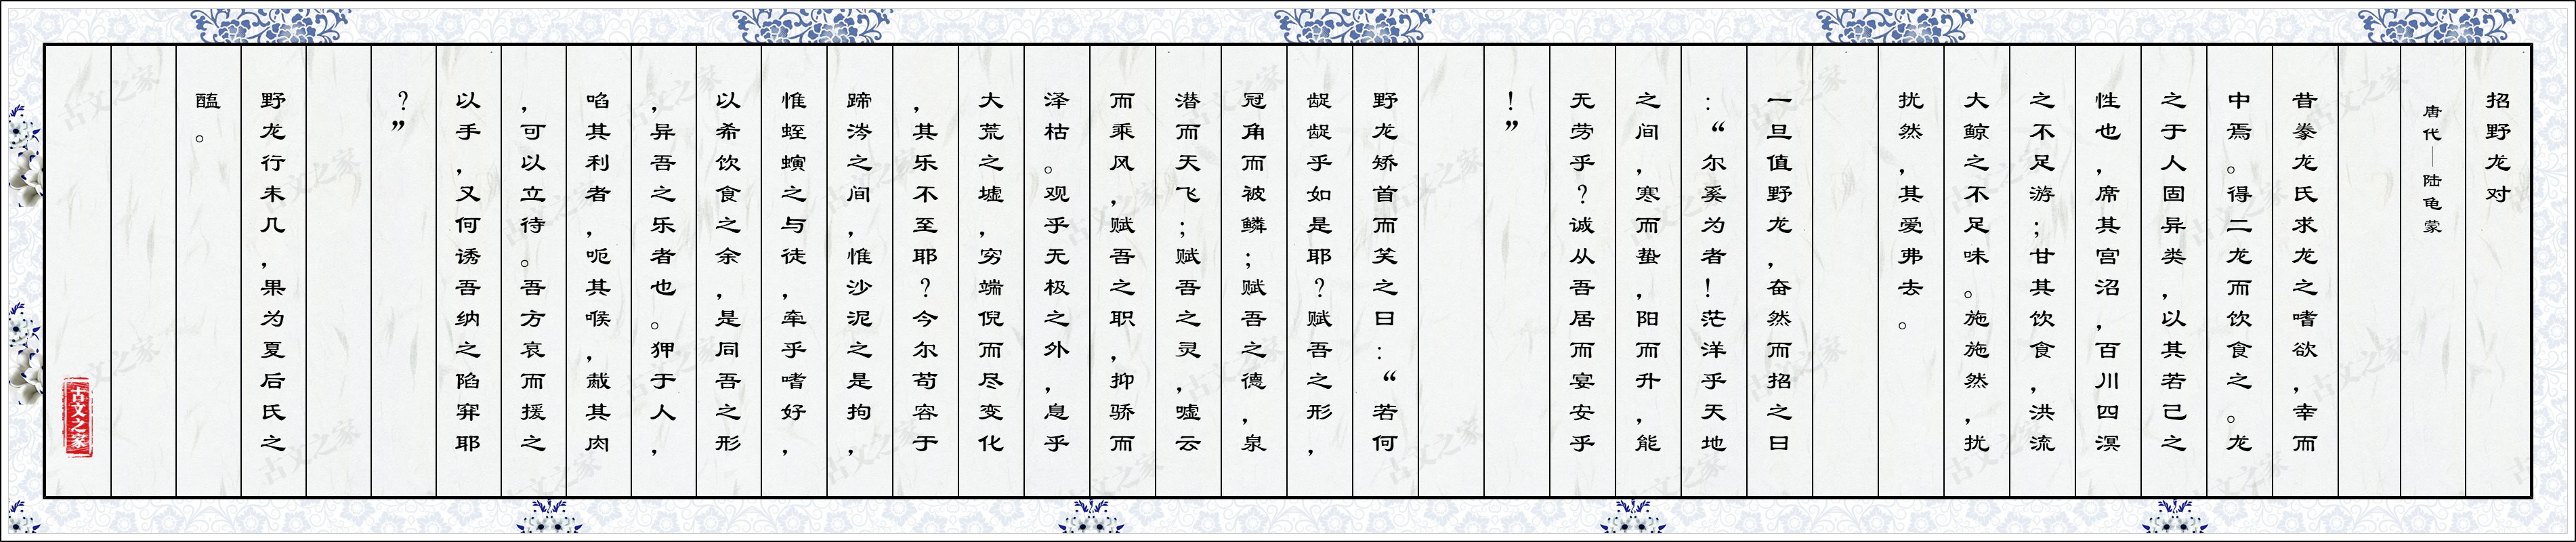 招野龙对
唐代—陆龟蒙
昔豢龙氏求龙之嗜欲，幸而
中焉。得二龙而饮食之。龙
之于人固异类，以其若己之
性也，席其宫沼，百川四溟
之不足游；甘其饮食，洪流
大鲸之不足味。施施然，扰
扰然，其爱弗去。
一旦值野龙，奋然而招之曰
：“尔奚为者！茫洋乎天地
之间，寒而蛰，阳而升，能
无劳乎？诚从吾居而宴安乎
！”
野龙矫首而笑之曰：“若何
龊龊乎如是耶？赋吾之形，
冠角而被鳞；赋吾之德，泉
潜而天飞；赋吾之灵，嘘云
而乘风，赋吾之职，抑骄而
泽枯。观乎无极之外，息乎
大荒之墟，穷端倪而尽变化
，其乐不至耶？今尔苟容于
蹄涔之间，惟沙泥之是拘，
惟蛭螾之与徒，牵乎嗜好，
以希饮食之余，是同吾之形
，异吾之乐者也。狎于人，
啗其利者，呃其喉，胾其肉
，可以立待。吾方哀而援之
以手，又何诱吾纳之陷穽耶
？”
野龙行未几，果为夏后氏之
醢。
古文之家